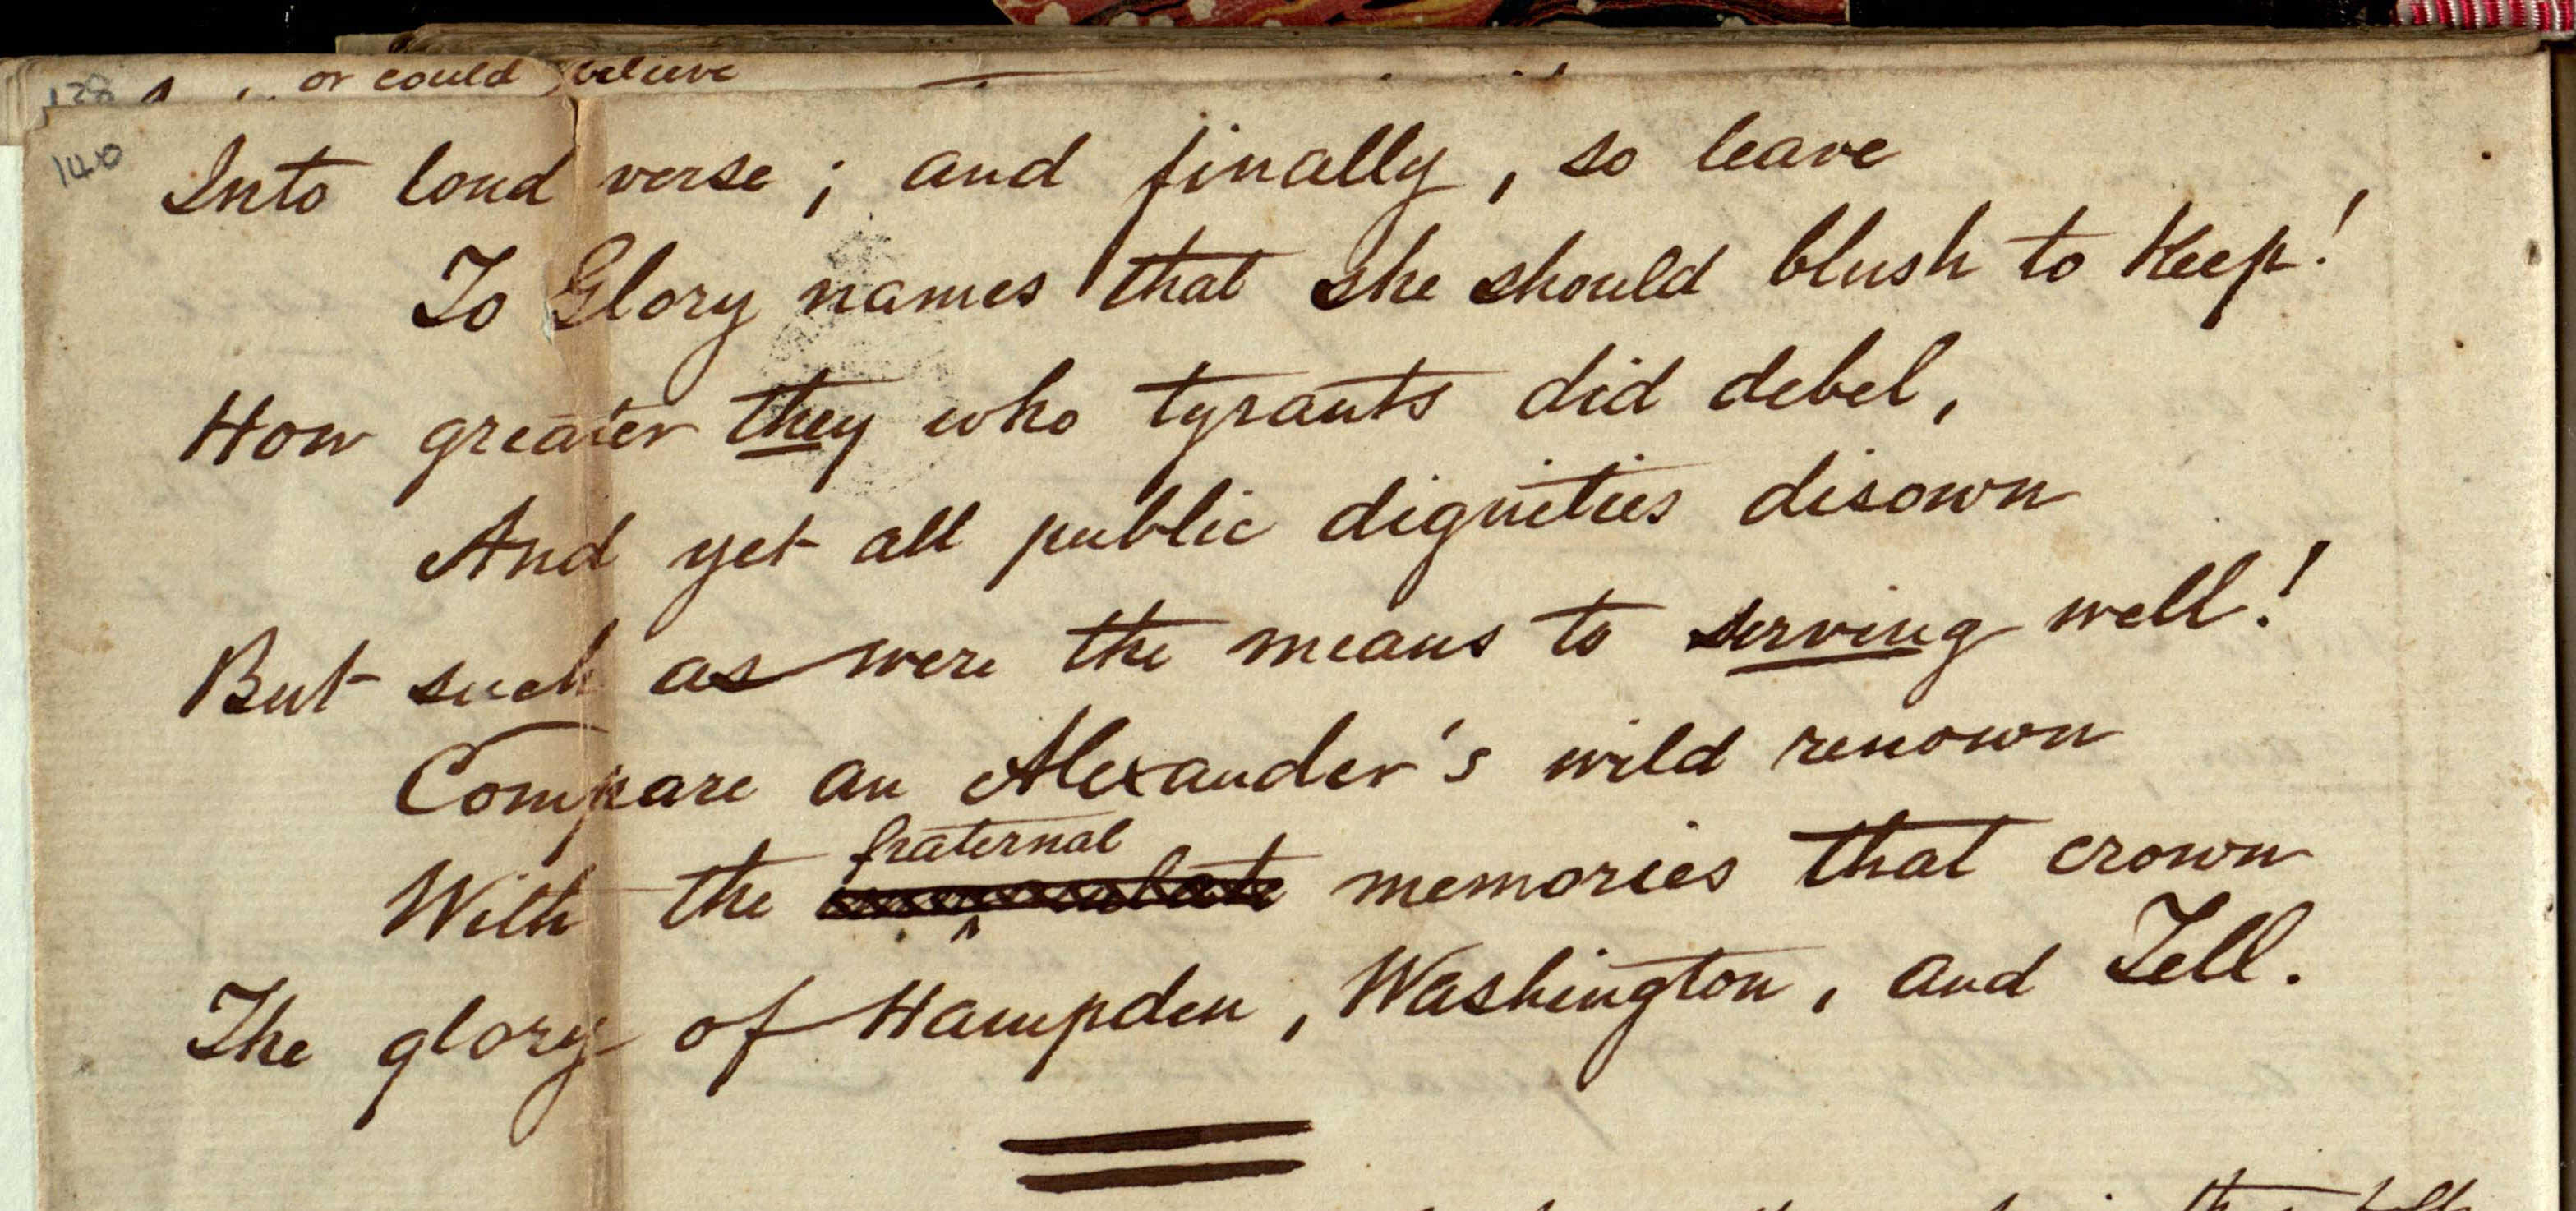 128 or could believe
140
Into loud verse; and finally, so leave
To Glory names that she should blush to Keep!
How greater they who tyrants did debel,
And yet all public dignities disown
But such as were the means to serving well!
Compare an Alexander's wild renown
fraternal
With the immaculate memories that crown
The glory of Hampden, Washington, and Tell.